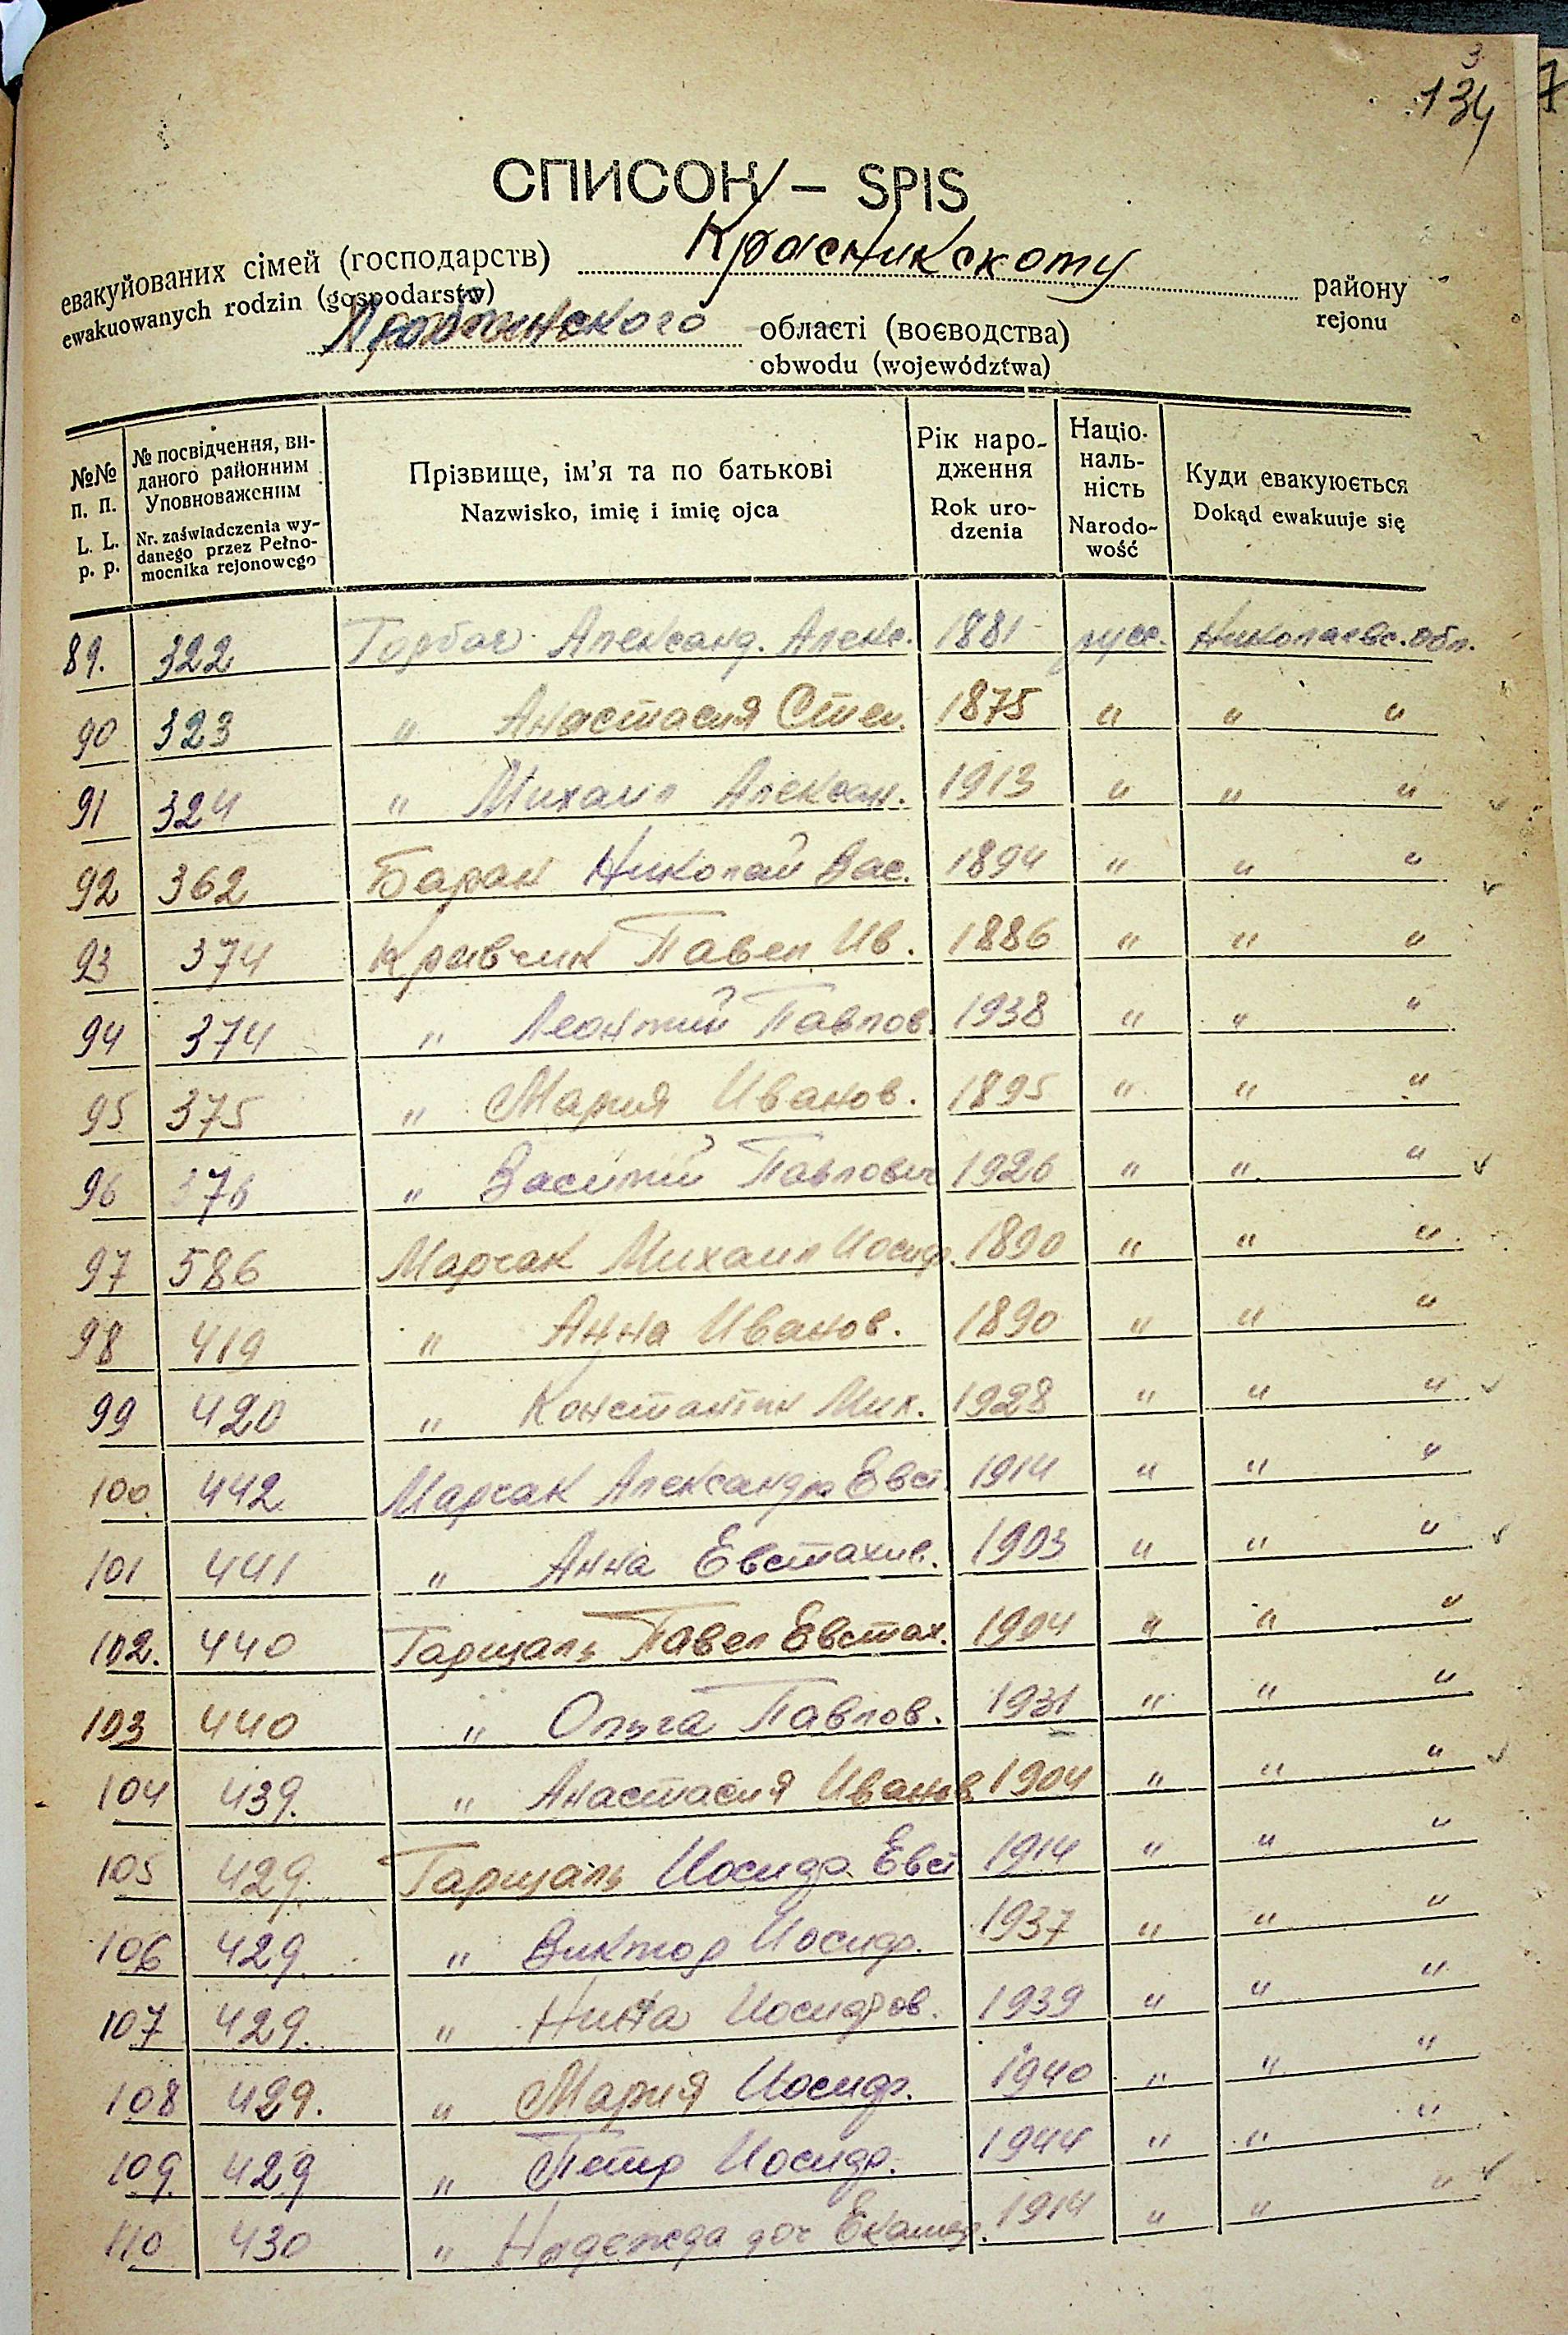 3
134
7
СПИСОК — SPIS
евакуйованих сімей (господарств) Красникскому району
ewakuowanych rodzin (gospodarstw) rejonu
Люблинского області (воєводства)
obwodu (województwa)
№№ п. п. L. L. p. p. | № посвідчення, виданого районним Уповноваженим Nr. zaświadczenia wydanego przez Pełnomocnika rejonowego | Прізвище, ім'я та по батькові Nazwisko, imię i imię ojca | Рік народження Rok urodzenia | Національність Narodowość | Куди евакуюється Dokąd ewakuuje się
89. 322 Горбач Александ. Алекс. 1881 русс. Николаевс. обл.
90 323 " Анастасия Степ. 1875 " " "
91 324 " Михаил Алексан. 1913 " " "
92 362 Баран Николай Вас. 1894 " " "
93 374 Кривчик Павел Ив. 1886 " " "
94 374 " Леонтий Павлов. 1938 " " "
95 375 " Мария Иванов. 1895 " " "
96 376 " Василий Павлович 1926 " " "
97 586 Марчак Михаил Иосиф. 1890 " " "
98 419 " Анна Иванов. 1890 " " "
99 420 " Константин Мих. 1928 " " "
100 442 Марчак Александр Евст 1914 " " "
101 441 " Анна Евстахие. 1903 " " "
102. 440 Гарщаль Павел Евстах. 1904 " " "
103 440 " Ольга Павлов. 1931 " " "
104 439. " Анастасия Иванов 1904 " " "
105 429. Гарщаль Иосиф Евст 1914 " " "
106 429. " Виктор Иосиф. 1937 " " "
107 429. " Нина Иосифов. 1939 " " "
108 429. " Мария Иосиф. 1940 " " "
109. 429 " Петр Иосиф. 1944 " " "
110 430 " Надежда доч Екатер. 1914 " " "